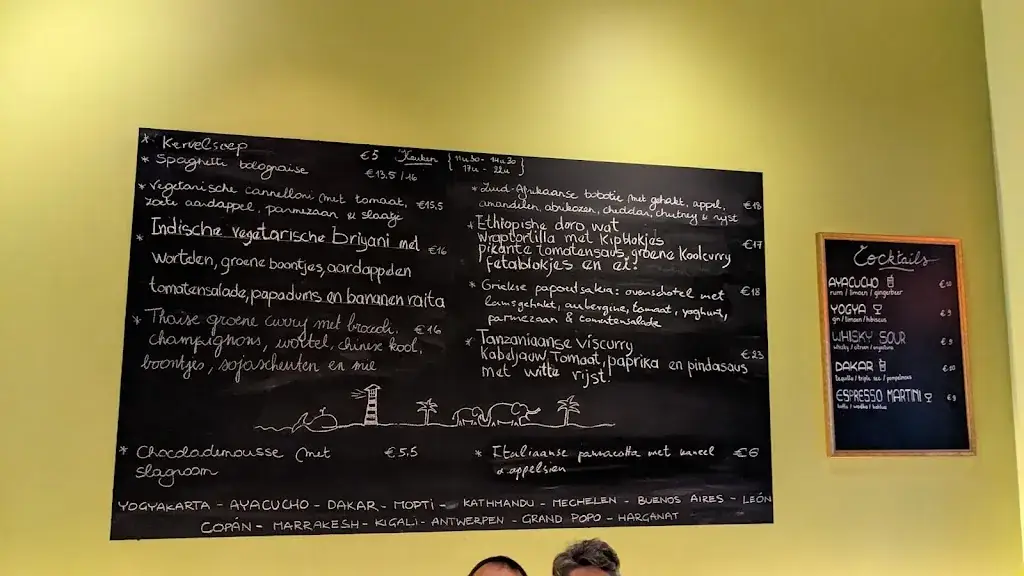 * Kervelsoep €5
* Spaghetti bolognaise €13.5/16
* Vegetarische cannelloni met tomaat, €15,5
zoete aardappel, parmezaan & slaatje
* Indische vegetarische briyani met €16
wortelen, groene boontjes, aardappelen
tomatensalade, papadums en bananen raita
* Thaise groene curry met brocoli, €16
champignons, wortel, chinese kool,
boontjes, sojascheuten en mie
Keuken { 11u30 - 14u30 }
17u - 22u
* Zuid-Afrikaanse bobotie met gehakt, appel, €18
amandelen, abrikozen, cheddar, chutney & rijst
* Ethiopishe doro wat
wraptortilla met kipblokjes €17
pikante tomatensaus, groene koolcurry
fetablokjes en ei!
* Griekse papoutsakia: ovenschotel met €18
lamsgehakt, aubergine, tomaat, yoghurt,
parmezaan & tomatensalade
* Tanzaniaanse viscurry
Kabeljauw, tomaat, paprika en pindasaus €23
met witte rijst!
* Chocolademousse met €5.5
slagroom
* Italiaanse pannacotta met kaneel €6
& appelsien
YOGYAKARTA - AYACUCHO - DAKAR - MOPTI - KATHMANDU - MECHELEN - BUENOS AIRES - LEÓN
COPÁN - MARRAKESH - KIGALI - ANTWERPEN - GRAND POPO - HARGANAT
Cocktails
AYACUCHO
rum / limoen / gingerbeer
YOGYA €9
gin / limoen / hibiscus
WHISKY SOUR €9
whisky / citroen / angostura
DAKAR
tequila / triple sec / pompelmoes
ESPRESSO MARTINI €9
koffie / wodka / kahlua